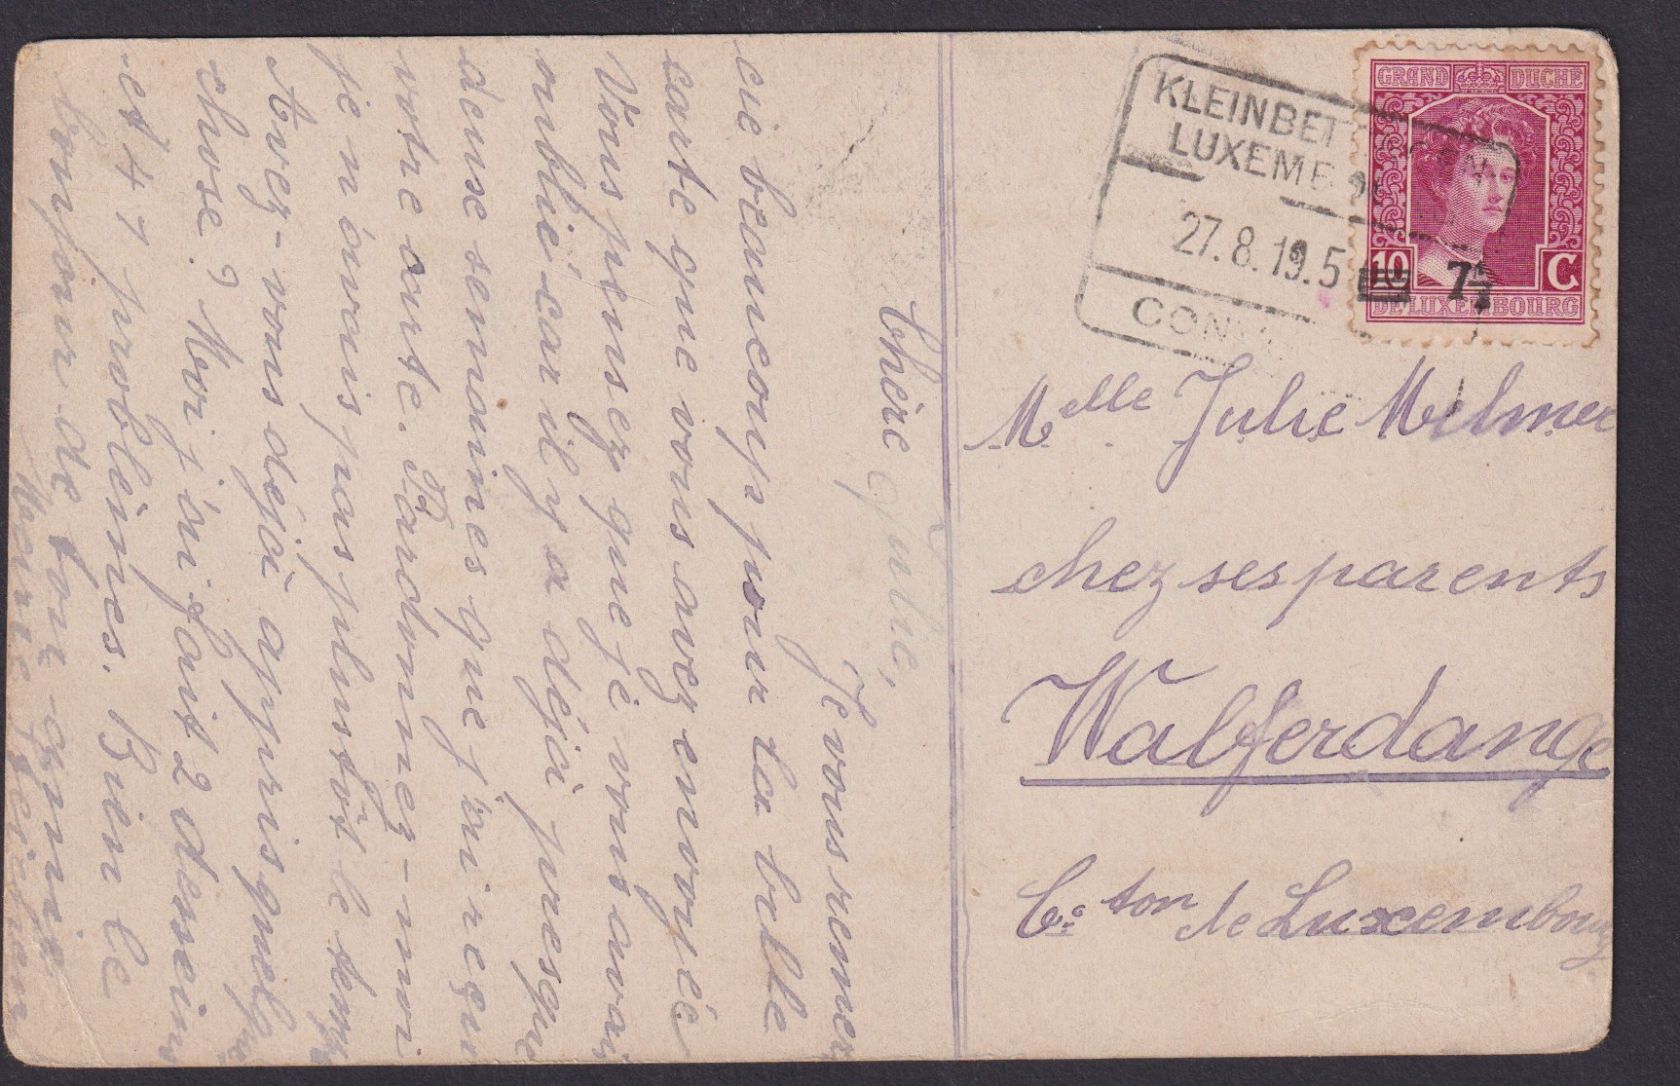 Chère Julie,
Je vous remer
cie beaucoup pour la belle
carte que vous avez envoyée
Vous pensez que je vous avais
oublié car il y a déjà presque
deuse semaines que j'ai reçu
votre carte. Pardonnez-moi
je n'avais pas plutôt le temps
Avez-vous déjà appris quelque
chose? Moi j'ai fait 2 dessins
et 47 problèmes. Bien le
bonjour de ton amie
Marie
KLEINBET
LUXEMB
27.8.19.5
CON
GRAND DUCHÉ
10 C
7½
DE LUXEMBOURG
Melle Julie
chez ses parents
Walferdange
C.ton de Luxembourg